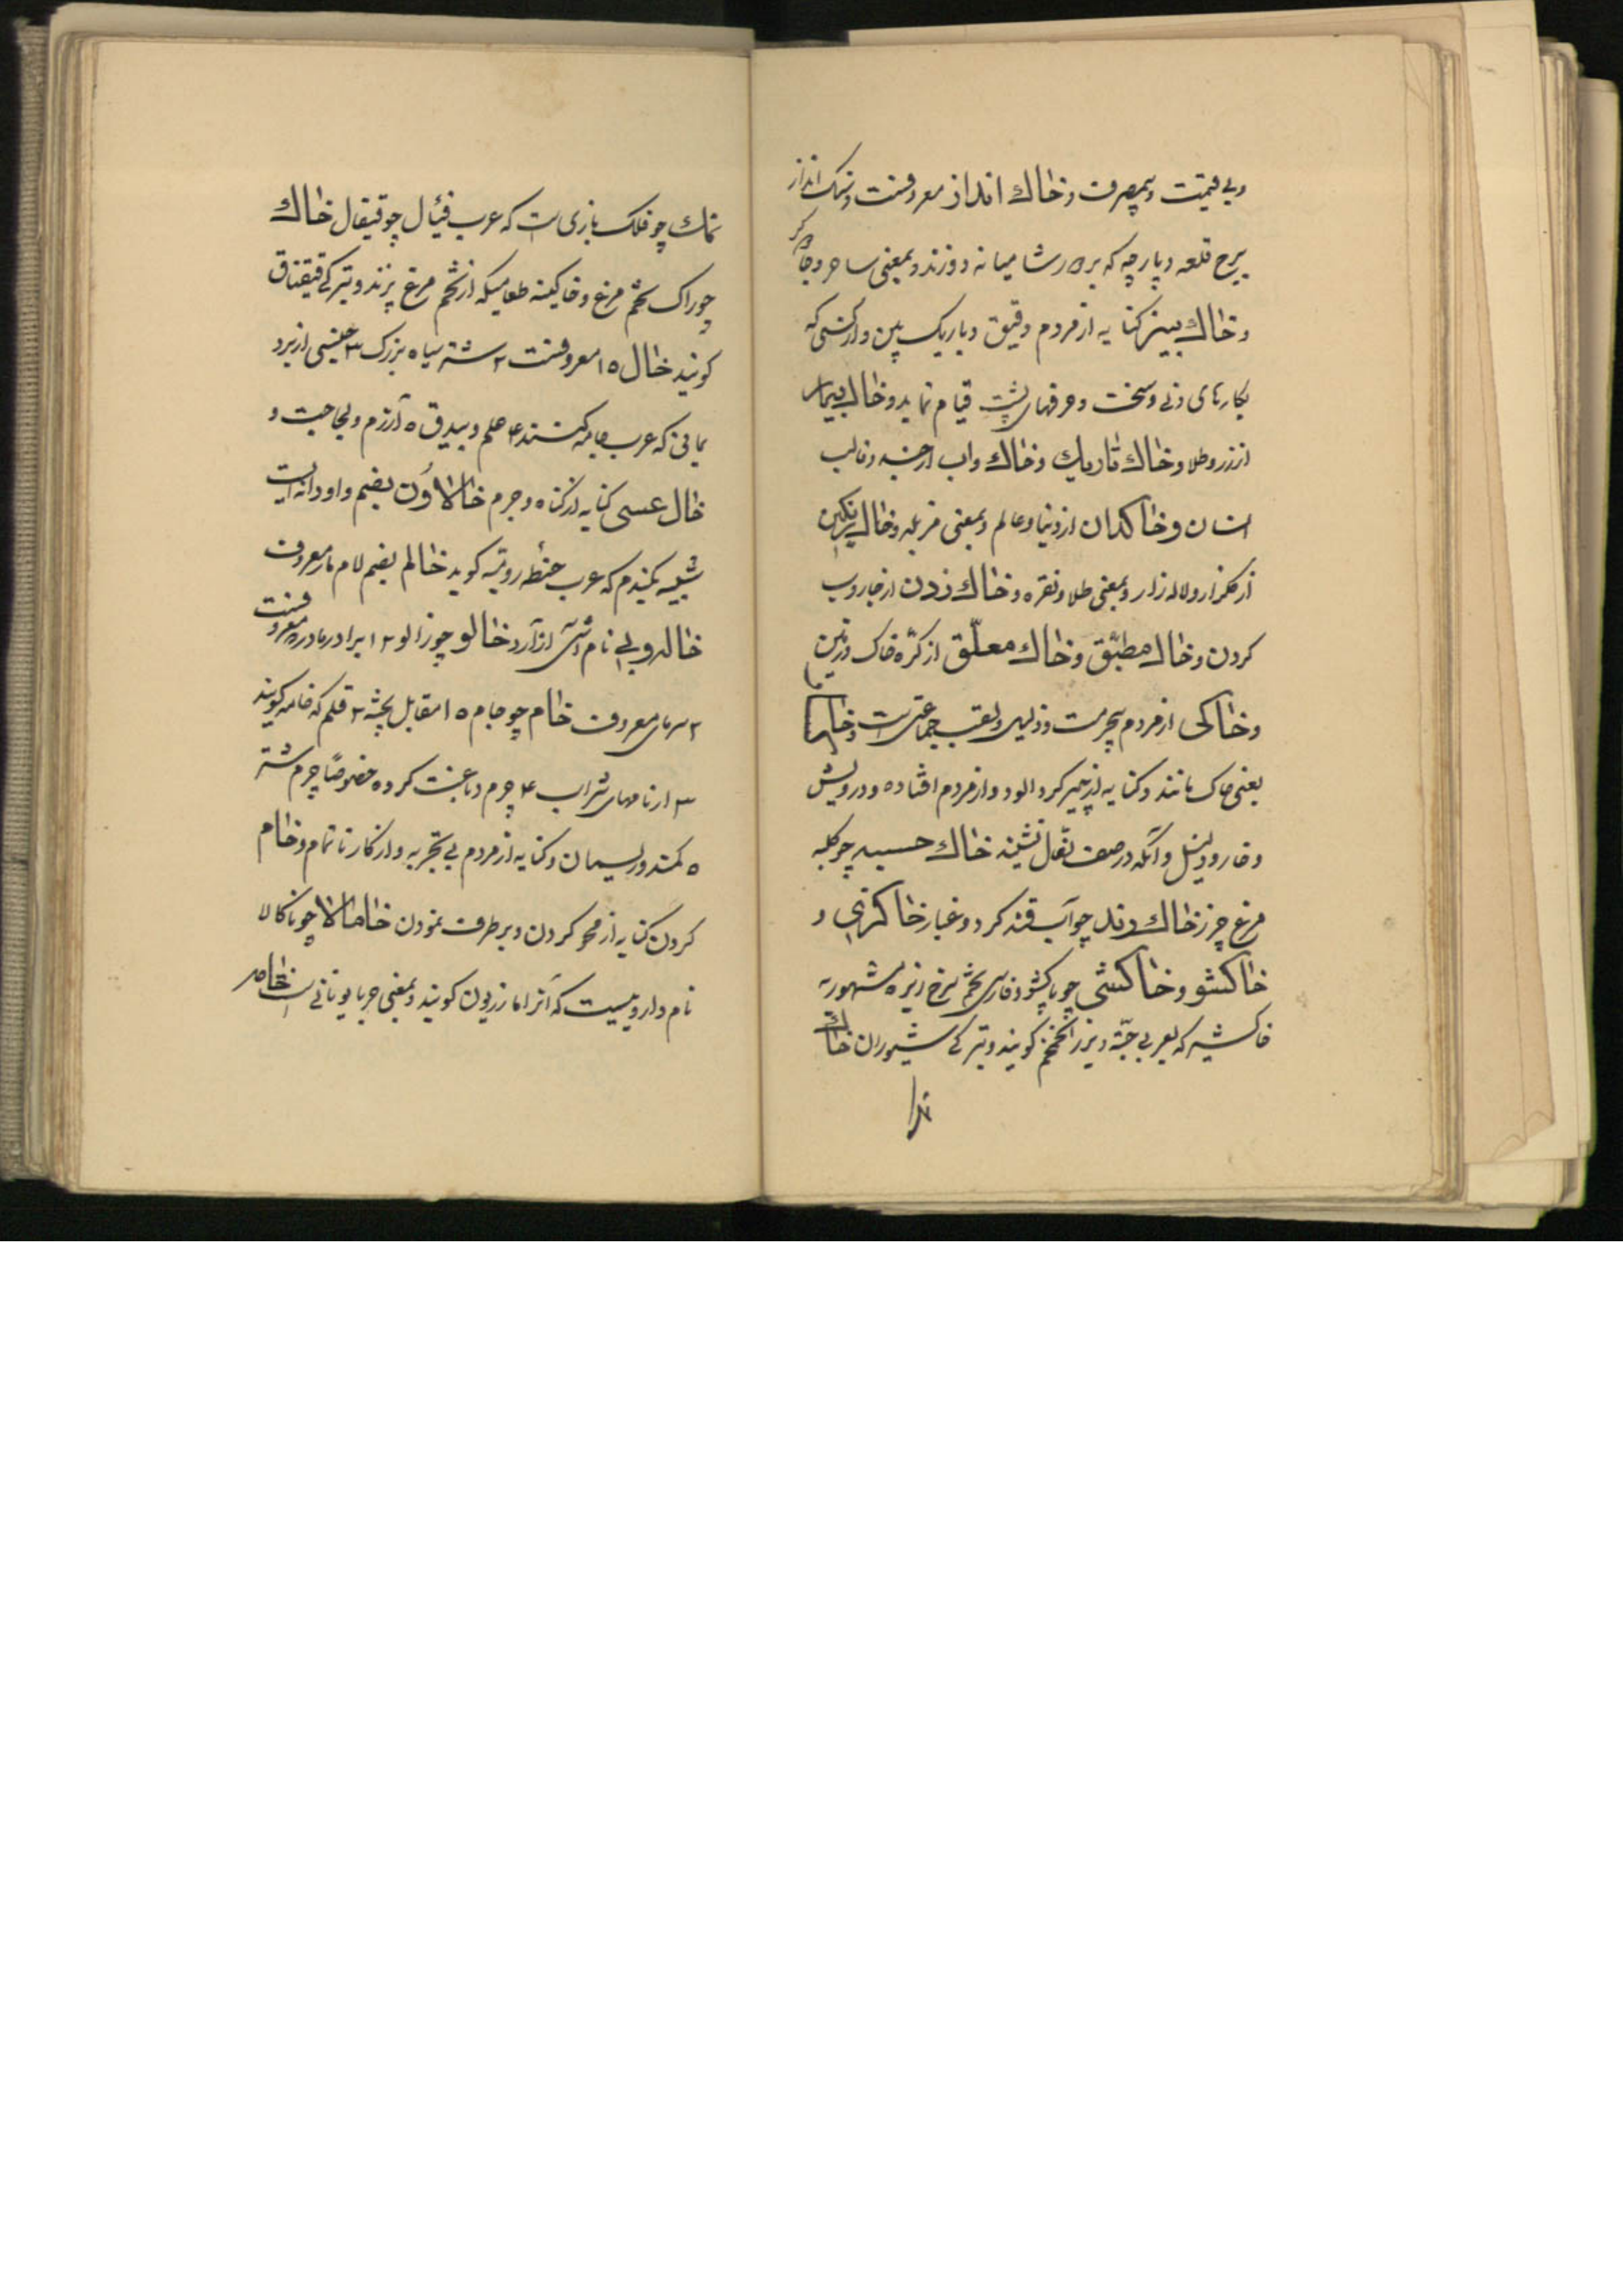 وبی قیمت و بمصرف و خاك انداز معروفست و سنک انداز
برج قلعه و پارچه که بر دور شامیانه دوزند و بمعنی ساحر و جادوکر
و خاك بیز کنایه از مردم دقیق و باریک بین و از کسی که
بکارهای دنی و سخت و حرفهای پشت قیام نماید و خاك بیمار
از زر و طلا و خاك تاریك و خاك و اب از جسد و قالب
انسان و خاکدان از دنیا و عالم و بمعنی مزبله و خاك رنکین
از کلزار و لاله زار و بمعنی طلا و نقره و خاك زدن از جاروب
کردن و خاك مطبّق و خاك معلّق از کرّه خاک و زمین
و خاکی از مردم بیحرمت و ذلیل و لقب جماعتی است و خاکسار
یعنی خاک مانند و کنایه از چیز کرد الود و از مردم افتاده و درویش
و خار و ذلیل و آنکه در صف نعال نشیند خاك حسیه چو کلیه
مرغ چرز خاك رند چو آب قند کرد و غبار خاکژنی و
خاکشو و خاکشی چو پاکشو و فارسی تخم سرخ ریزه مشهور به
خاکشیر که بعربی خبّه و بزر الخمخم کویند و بترکی شیوران خاك
نمك چو فلک بازی است که عرب فئال چو قیفال خاك
چوراک تخم مرغ و خاکینه طعامیکه از تخم مرغ پزند و بترکی قیقناق
کویند خال ٥ ۱ معروفست ۲ شتر سیاه بزرک ۳ جنسی از برد
یمانی که عرب جامه کنند ۴ علم و بیدق ٥ آزرم و لجاجت و
خال عسی کنایه از کناه و جرم خالاؤن بضم واو دانه ایست
شبیه بکندم که عرب حنطه رومیّه کوید خالم بضم لام مار معروف
خاله و بی بی نام آشی از آرد خالو چو زالو ۲ ۱ برادر مادر معروفست
۲ سرنای معروف خام چو جام ٥ ۱ مقابل پخته ۲ قلم که خامه کویند
۳ از نامهای شراب ۴ چرم دباغت کرده خصوصًا چرم شتر
٥ کمند و ریسمان و کنایه از مردم بی تجربه و از کار ناتمام و خام
کردن کنایه از محو کردن و برطرف نمودن خامالا چو ناکالا
نام داروییست که آنرا مازریون کویند و بمعنی حربا یونانی است خامر